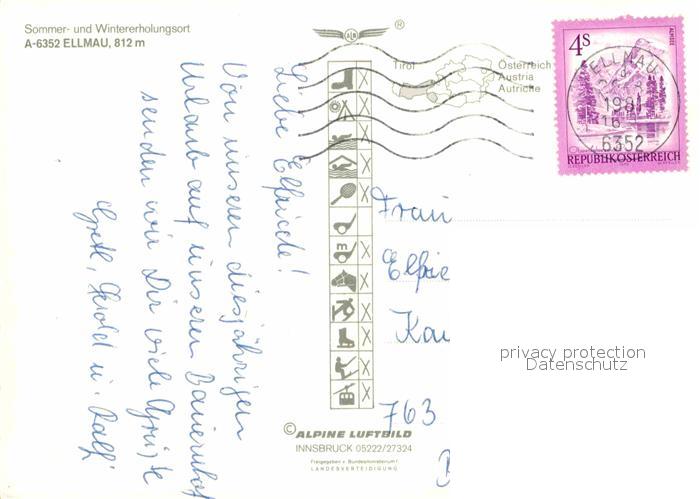 Sommer- und Wintererholungsort
A-6352 ELLMAU, 812 m
ALB
®
Tirol
Österreich
Austria
Autriche
4S
ALMSEE
REPUBLIK ÖSTERREICH
ELLMAU
198
16
6352
Liebe Elfriede!
Von unserem diesjährigen
Urlaub auf unserem Bauernhof
senden wir Dir viele Grüße
Gretl, Herold u. Ralf
Frau
Elfrie
Kau
763
m
© ALPINE LUFTBILD
INNSBRUCK 05222/27324
Freigegeben v. Bundesministerium f.
LANDESVERTEIDIGUNG
privacy protection
Datenschutz